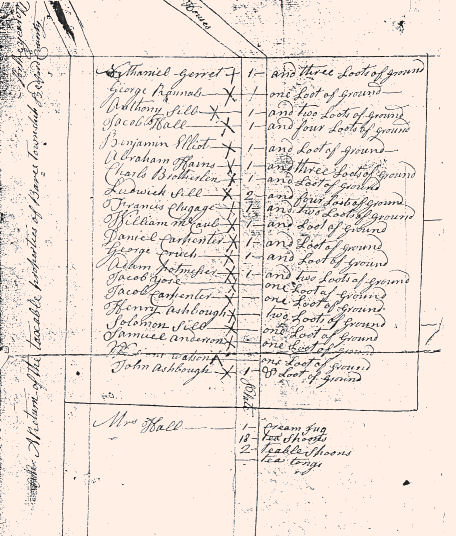 Houses
A Return of the taxable properties of Barree Township Bedford County
Nathaniel Gerret X 1 — and three Loots of Ground
George Rounals X 1 one Loot of Ground
Anthony Sill X 1 — and two Loots of Ground
Jacob Hall X 1 — and four Loots of Ground
Benjamin Elliot X 1 — and Loot of Ground
Abraham Hains X 1 — and three Loots of Ground
Charls Brotherlen X 1 — and Loot of Ground
Ludwick Sill X 2 — and four Loots of Ground
Francis Clugage X 1 — and two Loots of Ground
William McCaul X 1 — and Loot of Ground
Daniel Carpenter X 1 — and Loot of Ground
George Crich X 1 — and Loot of Ground
Adam X 1 — and two Loots of Ground
Jacob Yose X — one Loot of Ground
Jacob Carpenter X — one Loot of Ground
Henry Ashbough X — two Loots of Ground
Solomon Sill X — one Loot of Ground
Samuel Anderson X — one Loot of Ground
Watson X — one Loot of Ground
John Ashbough X 1 — 8 Loot of Ground
Plate
Mrs Hall — 1 — Cream Jug
18 — tea Spoons
2 — teable Spoons
— tea tongs